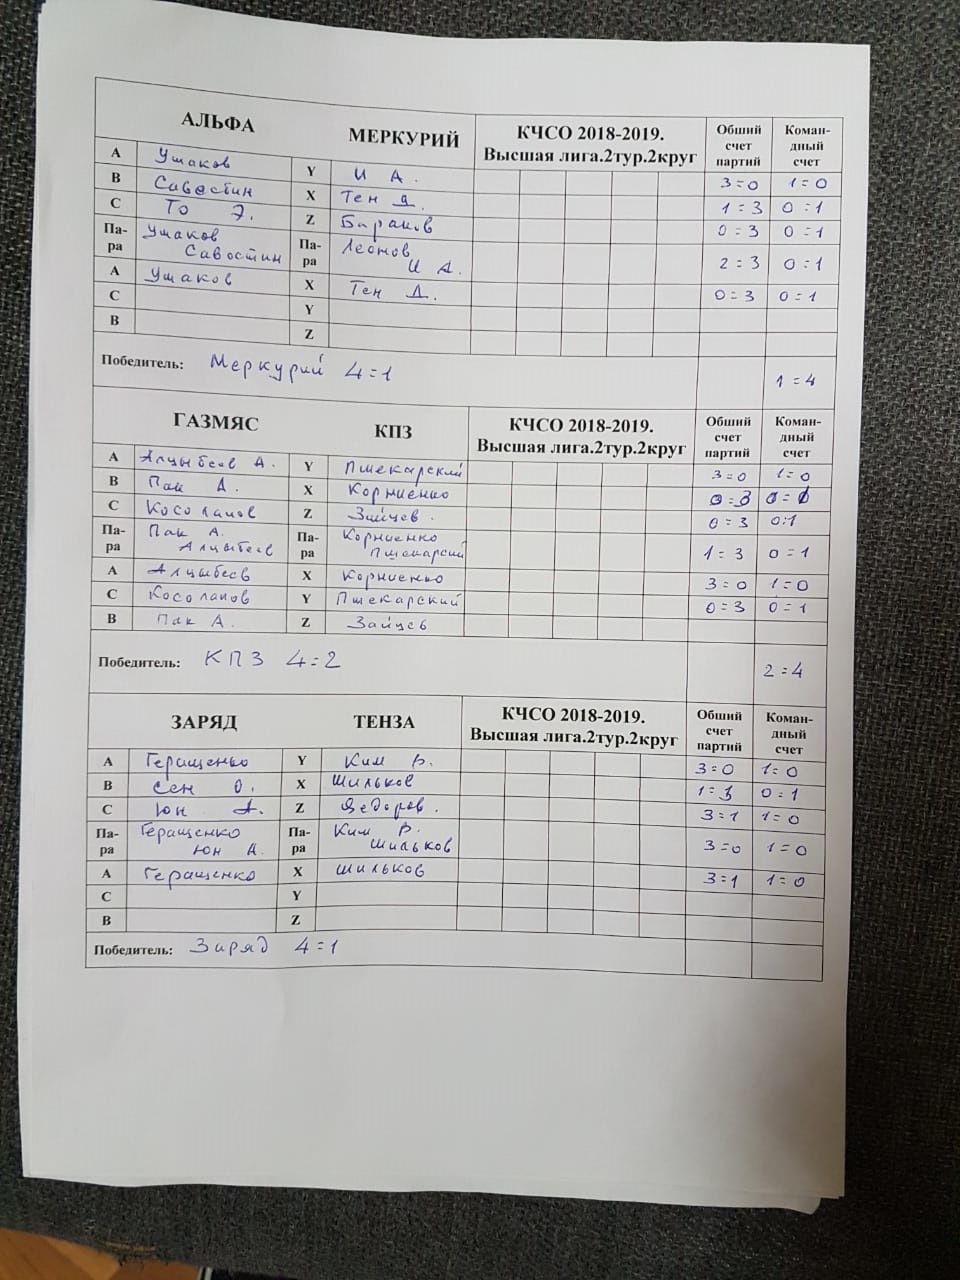 АЛЬФА МЕРКУРИЙ КЧСО 2018-2019. Высшая лига.2тур.2круг Общий счет партий Коман-дный счет
A Ушаков Y И А. 3=0 1=0
B Савостин X Тен Д. 1=3 0:1
C То Э. Z Баранов 0=3 0=1
Па-ра Ушаков Савостин Па-ра Леонов И А. 2=3 0=1
A Ушаков X Тен Д. 0=3 0=1
C Y
B Z
Победитель: Меркурий 4=1 1=4
ГАЗМЯС КПЗ КЧСО 2018-2019. Высшая лига.2тур.2круг Общий счет партий Коман-дный счет
A Алцыбеев А. Y Пшекарский 3=0 1=0
B Пак А. X Корниенко 0=3
C Косолапов Z Зайцев. 0=3 0:1
Па-ра Пак А. Алцыбеев Па-ра Корниенко Пшекарский 1=3 0=1
A Алцыбеев X Корниенко 3=0 1=0
C Косолапов Y Пшекарский 0=3 0=1
B Пак А. Z Зайцев
Победитель: КПЗ 4=2 2=4
ЗАРЯД ТЕНЗА КЧСО 2018-2019. Высшая лига.2тур.2круг Общий счет партий Коман-дный счет
A Геращенко Y Ким В. 3=0 1=0
B Сен О. X Шильков 1=3 0=1
C Юн А. Z Федоров. 3=1 1=0
Па-ра Геращенко Юн А. Па-ра Ким В. Шильков 3=0 1=0
A Геращенко X Шильков 3=1 1=0
C Y
B Z
Победитель: Заряд 4=1